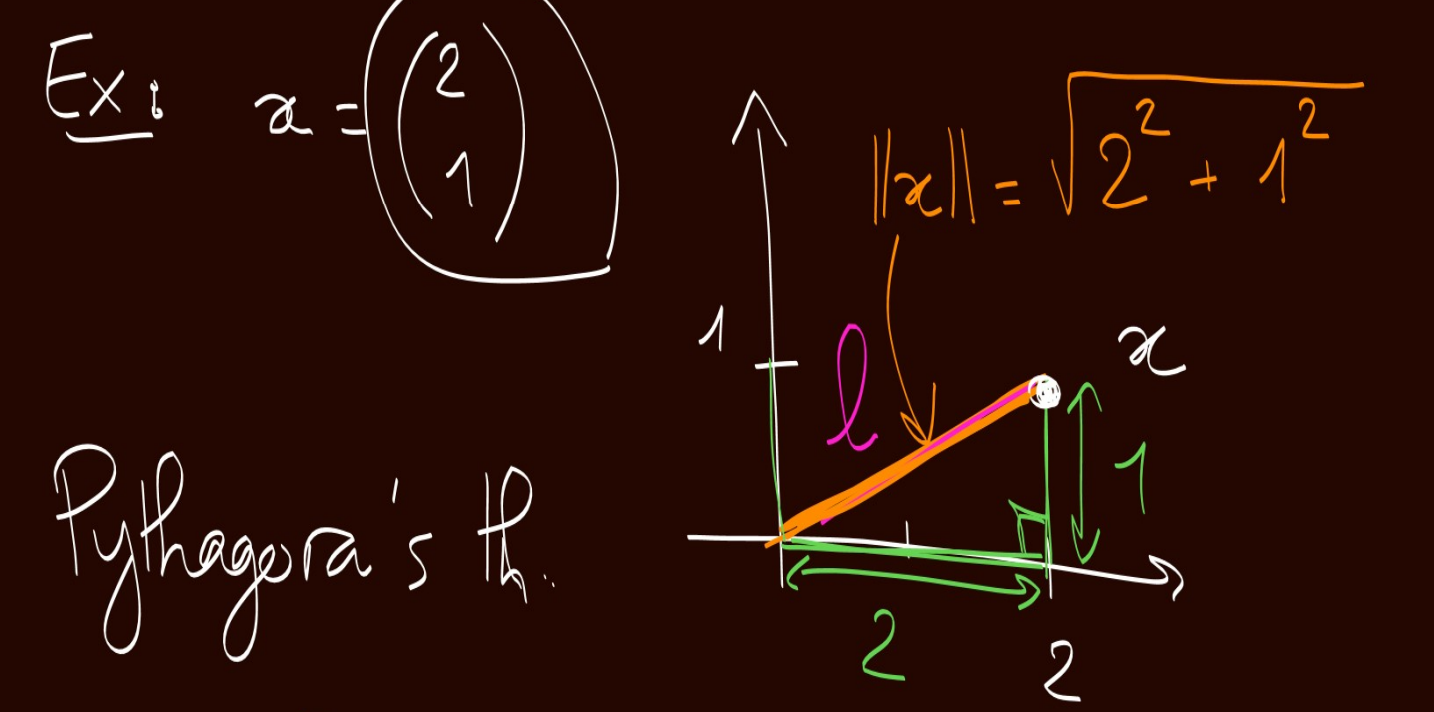 Ex: x = (2
1)
||x|| = √2² + 1²
1
l
x
1
Pythagora's th.
2
2